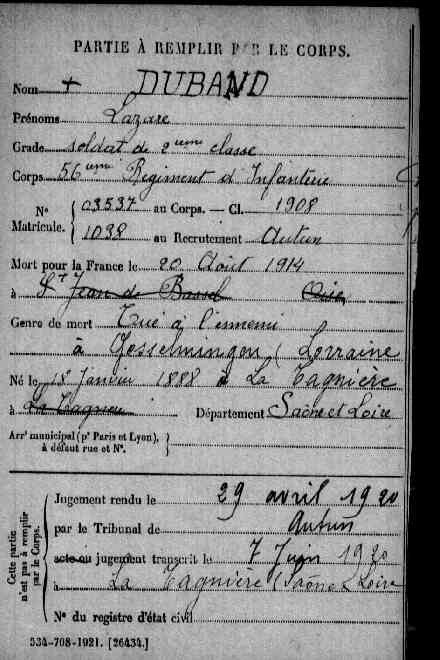 PARTIE À REMPLIR PAR LE CORPS.
Nom + DUBAND
Prénoms Lazare
Grade soldat de 2ème classe
Corps 56ème Régiment d'Infanterie
N° Matricule. { 03537 au Corps. — Cl. 1908
1038 au Recrutement Autun
Mort pour la France le 20 Août 1914
à St Jean de Bassel
Genre de mort Tué à l'ennemi
à Gosselmingen (Lorraine
Né le 18 Janvier 1888 à La Tagnière
à La Tagnière Département Saône et Loire
Arr¹ municipal (p' Paris et Lyon), à défaut rue et N°. }
Cette partie n'est pas à remplir par le Corps.
Jugement rendu le 29 avril 1920
par le Tribunal de Autun
acte ou jugement transcrit le 7 Juin 1920
à La Tagnière (Saône & Loire
N° du registre d'état civil
534-708-1921. [26434.]